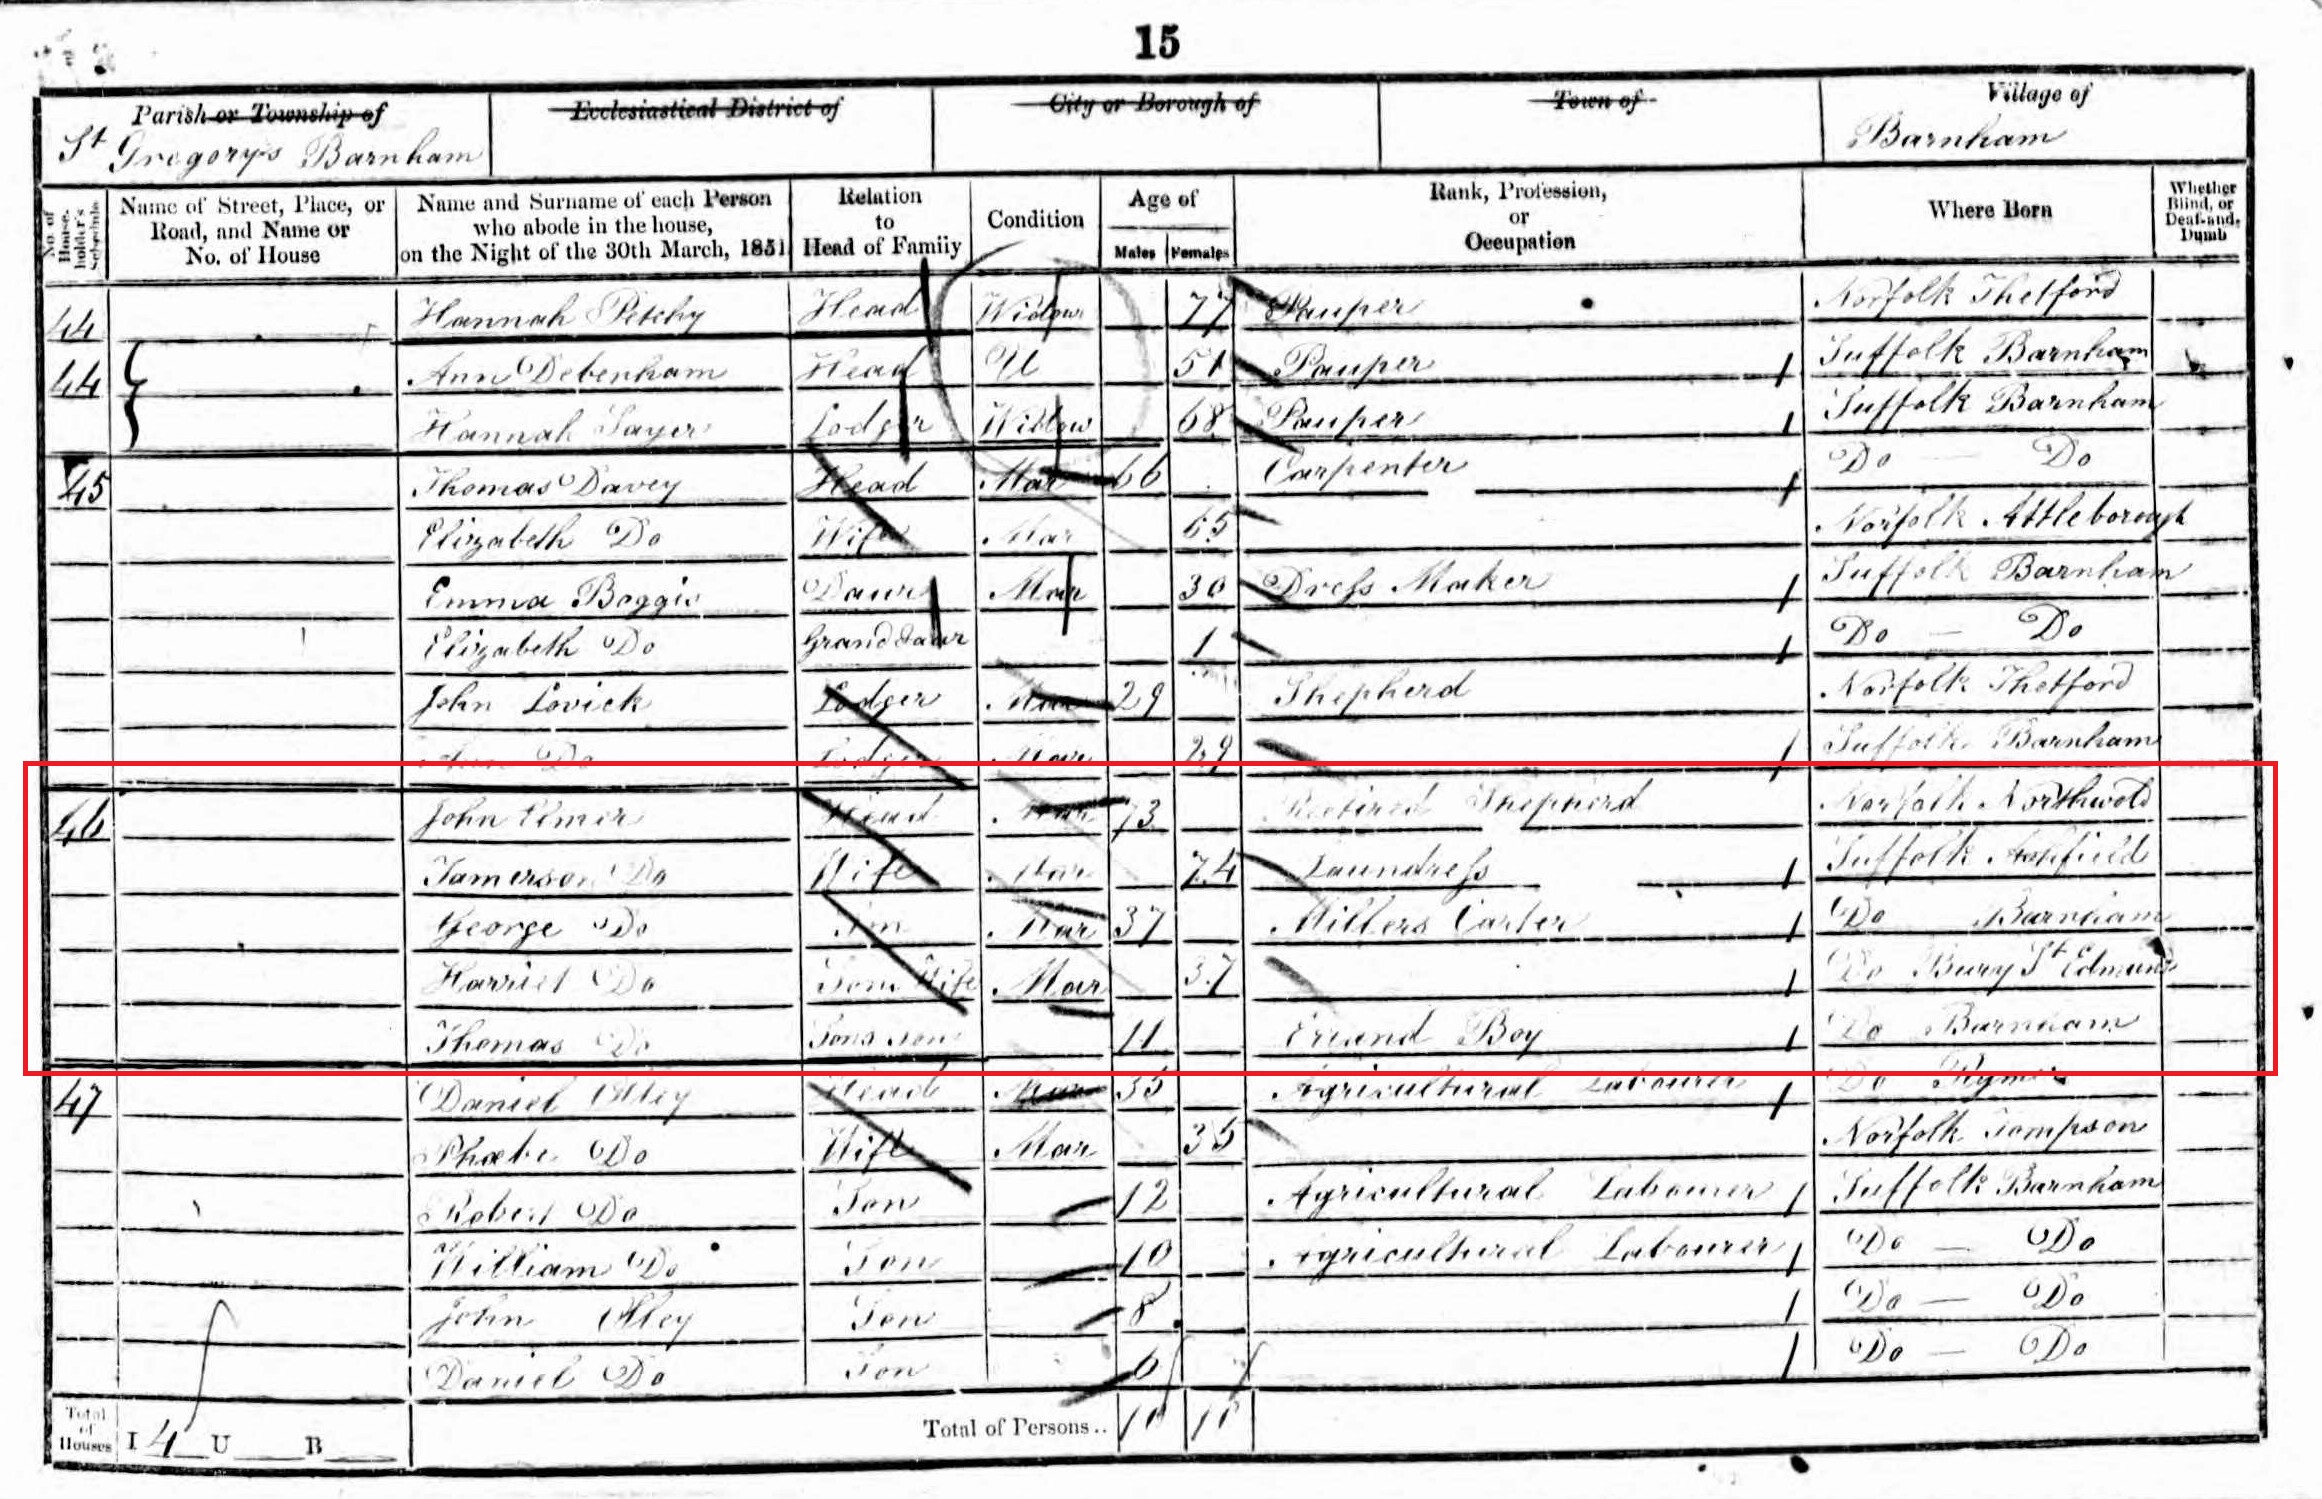 15
Parish or Township of Ecclesiastical District of City or Borough of Town of Village of
St Gregorys Barnham Barnham
No. of House-holder's Schedule Name of Street, Place, or Road, and Name or No. of House Name and Surname of each Person who abode in the house, on the Night of the 30th March, 1851 Relation to Head of Family Condition Age of Males Females Rank, Profession, or Occupation Where Born Whether Blind, or Deaf-and-Dumb
44 Hannah Petchy Head Widow 77 Pauper Norfolk Thetford
44 Ann Debenham Head U 51 Pauper Suffolk Barnham
Hannah Sayer Lodger Widow 68 Pauper Suffolk Barnham
45 Thomas Davey Head Mar 66 Carpenter Do — Do
Elizabeth Do Wife Mar 65 Norfolk Attleborough
Emma Boggis Daur Mar 30 Dress Maker Suffolk Barnham
Elizabeth Do Grand daur 1 Do — Do
John Lovick Lodger Mar 29 Shepherd Norfolk Thetford
Ann Do Lodger Mar 29 Suffolk Barnham
46 John Elmer Head Mar 73 Retired Shepherd Norfolk Northwold
Tamerson Do Wife Mar 74 Laundress Suffolk Ashfield
George Do Son Mar 37 Millers Carter Do Barnham
Harriet Do Sons Wife Mar 37 Do Bury St Edmunds
Thomas Do Sons son 11 Errand Boy Do Barnham
47 Daniel Olley Head Mar 35 Agricultural Labourer Do Rymer
Phœbe Do Wife Mar 35 Norfolk Tompson
Robert Do Son 12 Agricultural Labourer Suffolk Barnham
William Do Son 10 Agricultural Labourer Do — Do
John Olley Son 8 Do — Do
Daniel Do Son 6 Do — Do
Total of Houses I 4 U B Total of Persons.. 10 10